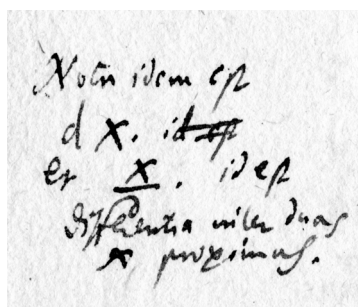 Nota idem est
d x. id est
et x. id est
differentia inter duas
x proximas.